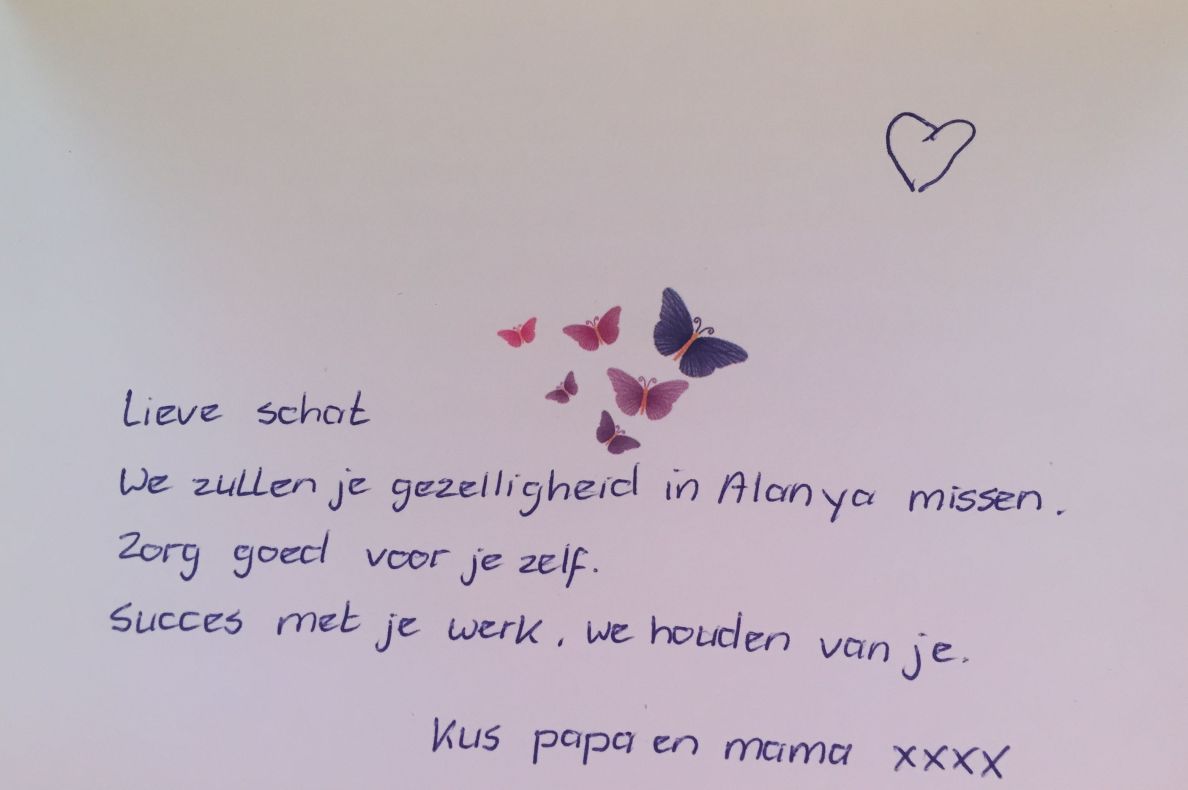 Lieve schat
We zullen je gezelligheid in Alanya missen.
Zorg goed voor je zelf.
Succes met je werk. We houden van je.
Kus papa en mama xxxx